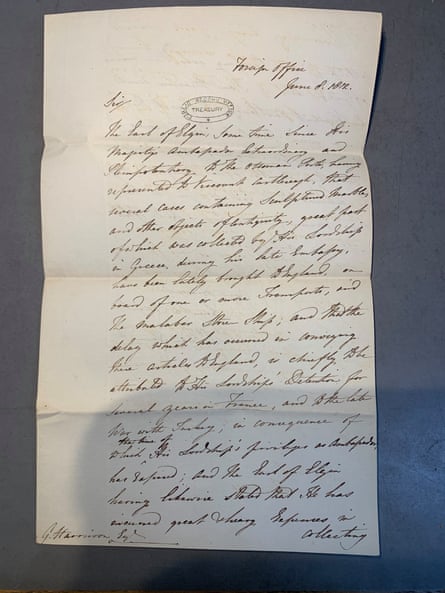 Foreign Office
June 8. 1812.
Sir
TREASURY
The Earl of Elgin, some time since His
Majesty's Ambassador Extraordinary and
Plenipotentiary to the Ottoman Porte, having
represented to Viscount Castlereagh, that
several cases containing Sculptured Marbles,
and other objects of Antiquity, great part
of which was collected by His Lordship
in Greece, during his late Embassy,
have been lately brought to England, on
board of one or more Transports, and
The Malabar Store Ship; and that the
delay which has occurred in conveying
these articles to England, is chiefly to be
attributed to His Lordship's Detention for
several years in France, and to the late
War with Turkey; in consequence of
which His Lordship's privileges as Ambassador,
has expired; and the Earl of Elgin
having likewise stated that He has
incurred great & heavy Expenses in
G. Harrison Esqr. collecting